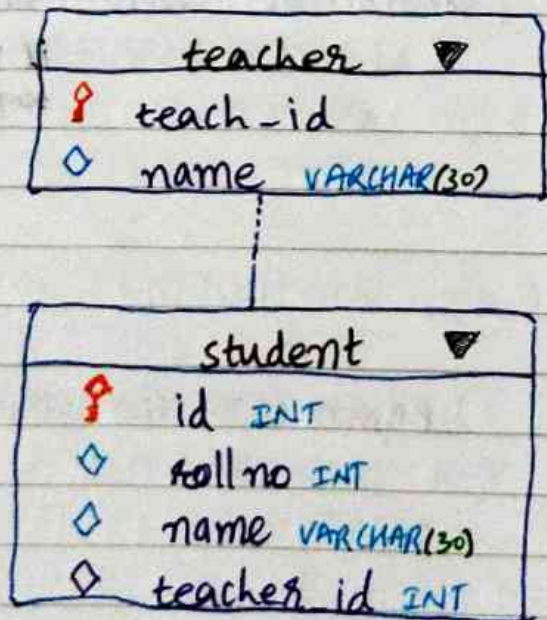 teacher
teach_id
name VARCHAR(30)
student
id INT
rollno INT
name VARCHAR(30)
teacher_id INT